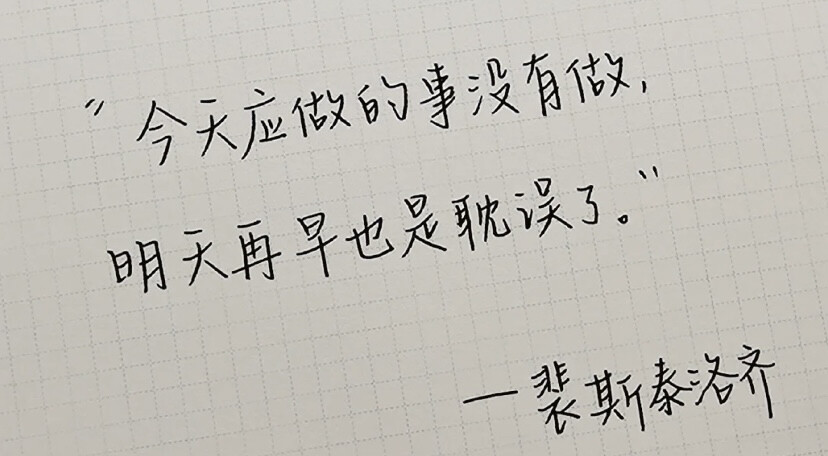 “今天应做的事没有做，
明天再早也是耽误了。”
—裴斯泰洛齐